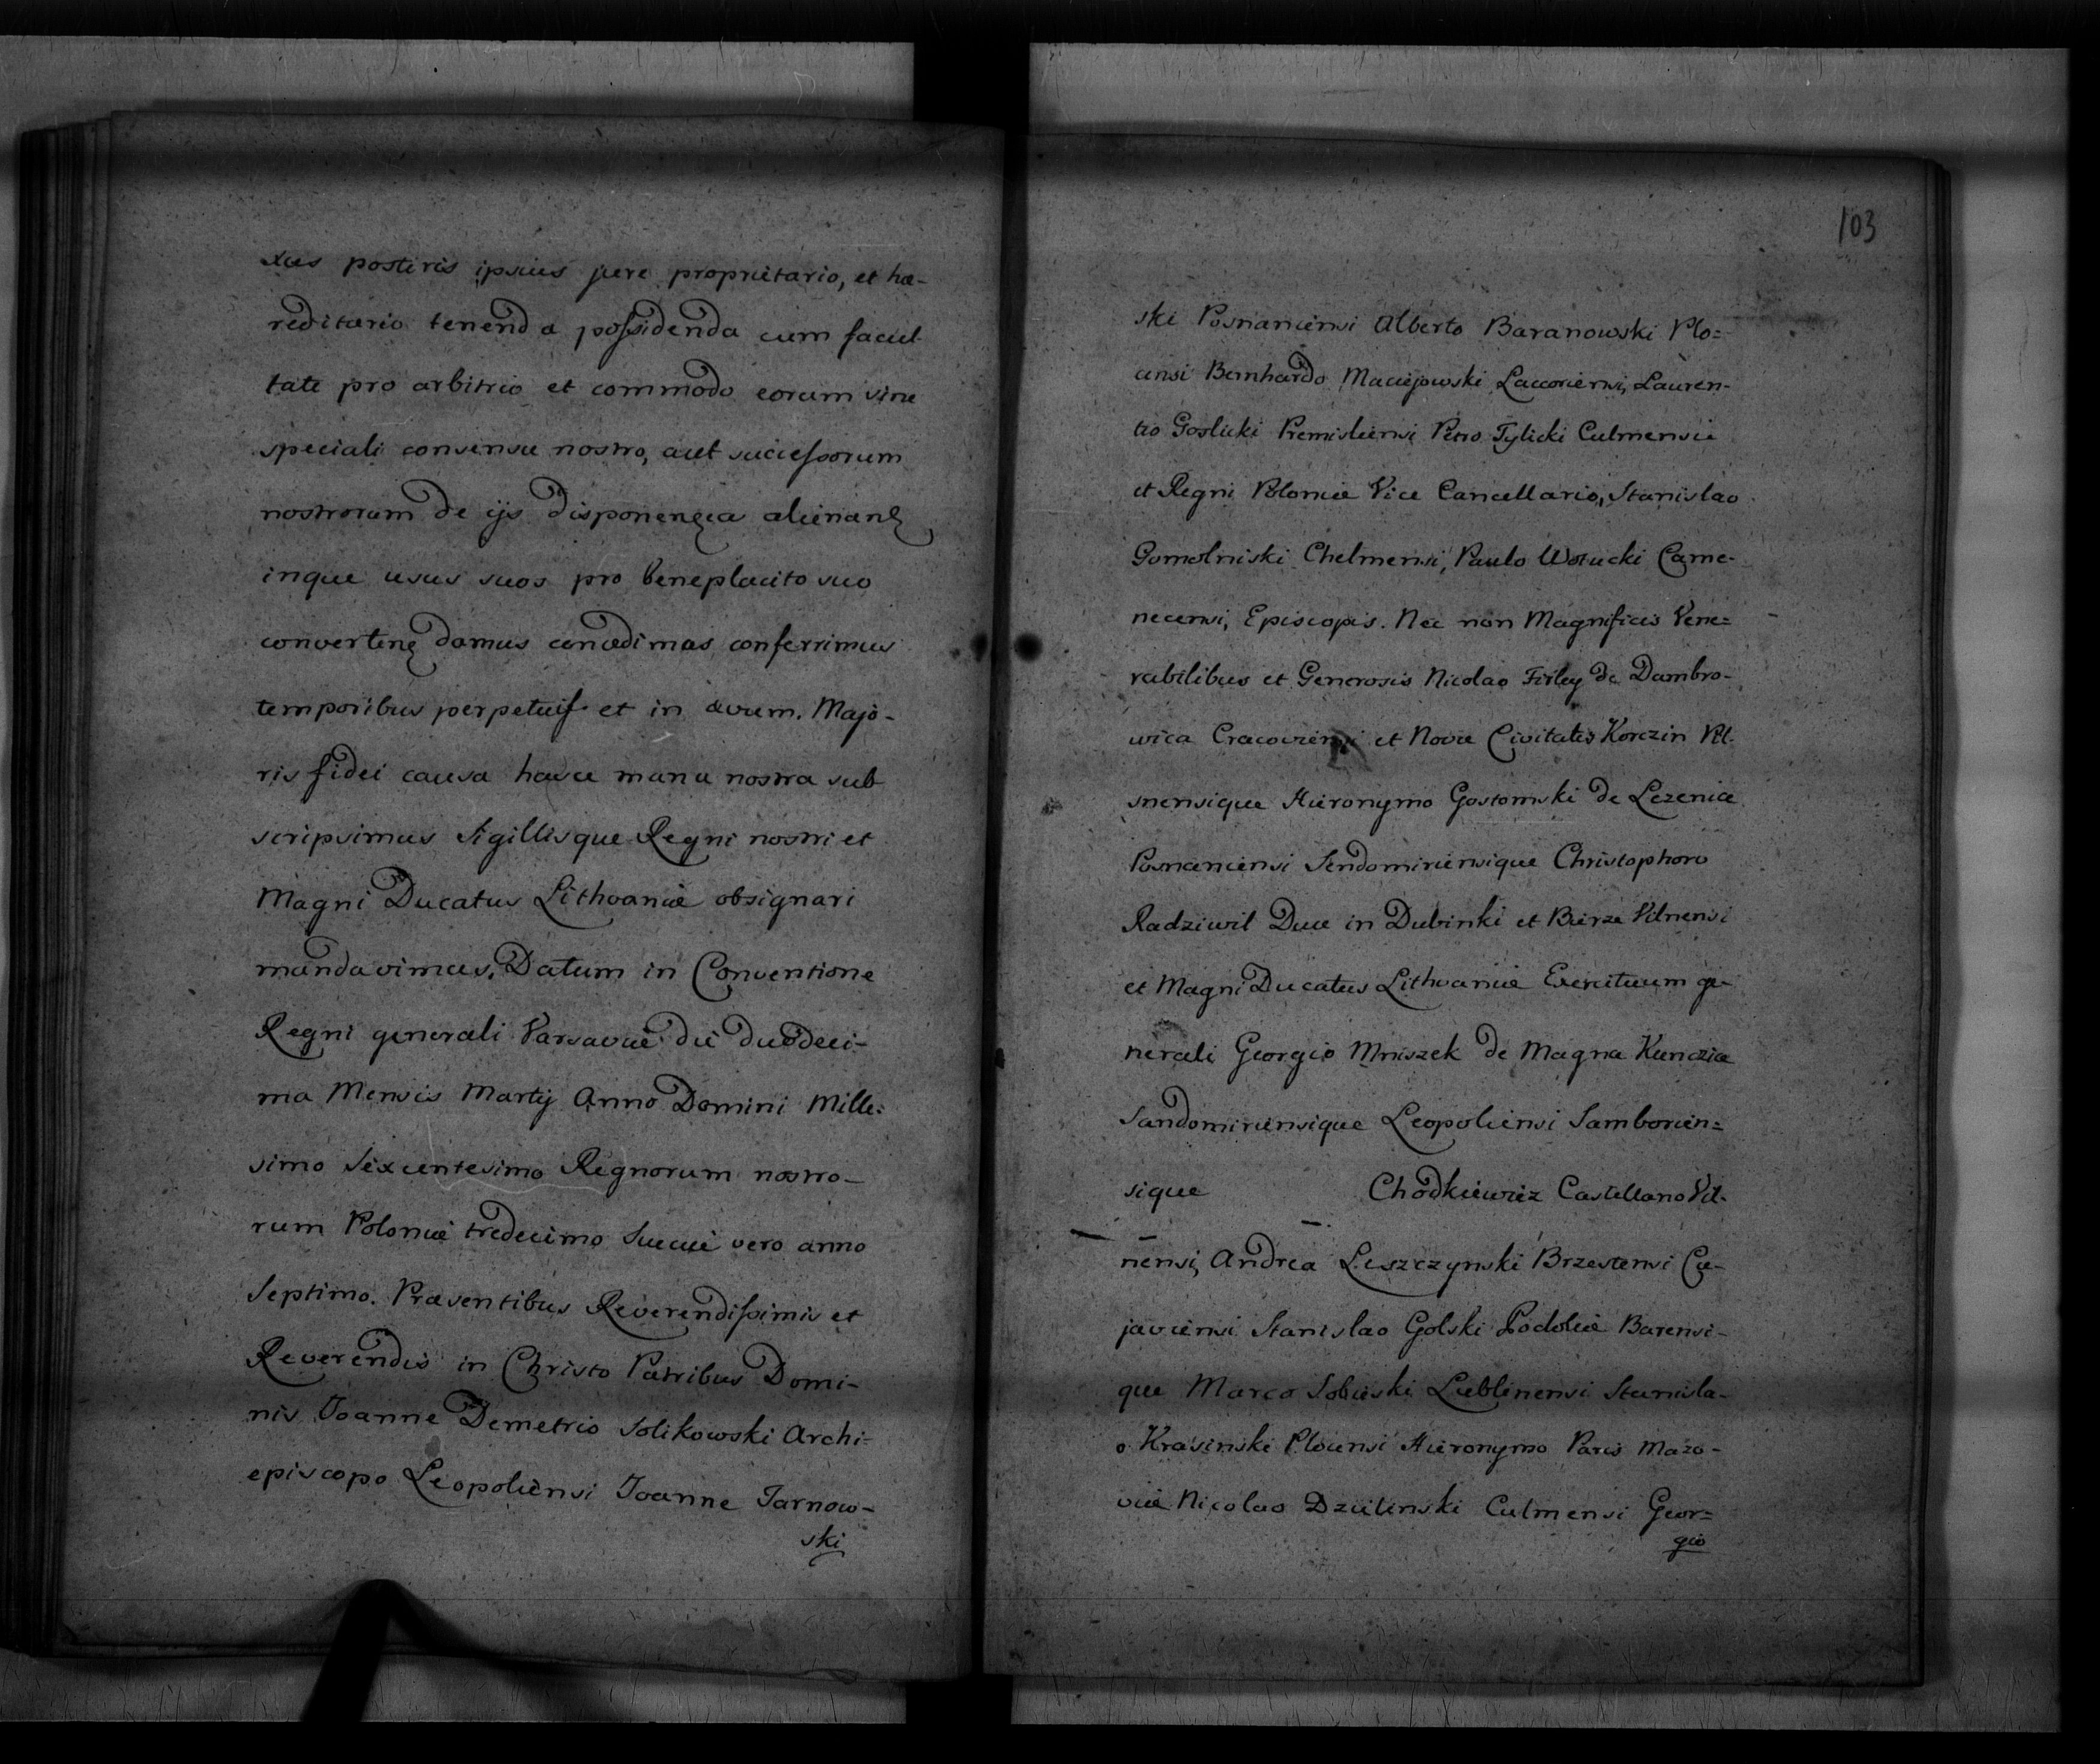 xus posteris ipsius jure proprietario, et hæ-
reditario tenenda possidenda cum facul-
tate pro arbitrio et commodo eorum sine
speciali consensu nostro, aut successorum
nostrorum de ijs disponen alienan
inque usus suos pro beneplacito suo
converten damus concedimus conferrimus
temporibus perpetuis et in ævum. Majo-
ris fidei causa hasce manu nostra sub
scripsimus Sigillisque Regni nostri et
Magni Ducatus Lithvaniæ obsignari
mandavimus. Datum in Conventione
Regni generali Varsaviæ die duodeci-
ma Mensis Martij Anno Domini Mille-
simo Sexcentesimo Regnorum nostro-
rum Poloniæ tredecimo Sueciæ vero anno
Septimo. Præsentibus Reverendissimis et
Reverendis in Christo Patribus Domi-
nis Joanne Demetrio Solikowski Archi-
episcopo Leopoliensi Joanne Tarnow-
ski
103
ski Posnaniensi Alberto Baranowski Plo-
censi Bernhardo Maciejowski Luceoriensi, Lauren-
tio Goslicki Premisliensi Petro Tylicki Culmensi
et Regni Poloniæ Vice Cancellario, Stanislao
Gomolniski Chelmensi, Paulo Wołucki Came-
necensi, Episcopis. Nec non Magnificis Vene-
rabilibus et Generosis Nicolao Firley de Dambro-
wica Cracoviensi et Novæ Civitatis Korczin Vil-
snensique Hieronymo Gostomski de Lezenice
Posnaniensi Sendomiriensique Christophoro
Radziwil Duce in Dubinki et Birze Vilnensi
et Magni Ducatus Lithvaniæ Exercituum ge-
nerali Georgio Mniszek de Magna Kunczice
Sandomiriensique Leopoliensi Samborien-
sique Chodkiewicz Castellano Vil-
nensi, Andrea Leszczynski Brzestensi Cu-
javiensi Stanislao Golski Podoliæ Barensi-
que Marco Sobieski Lublinensi Stanisla-
o Krasinski Plocensi Hieronymo Paris Mazo-
viæ Nicolao Dzialinski Culmensi Geor-
gio